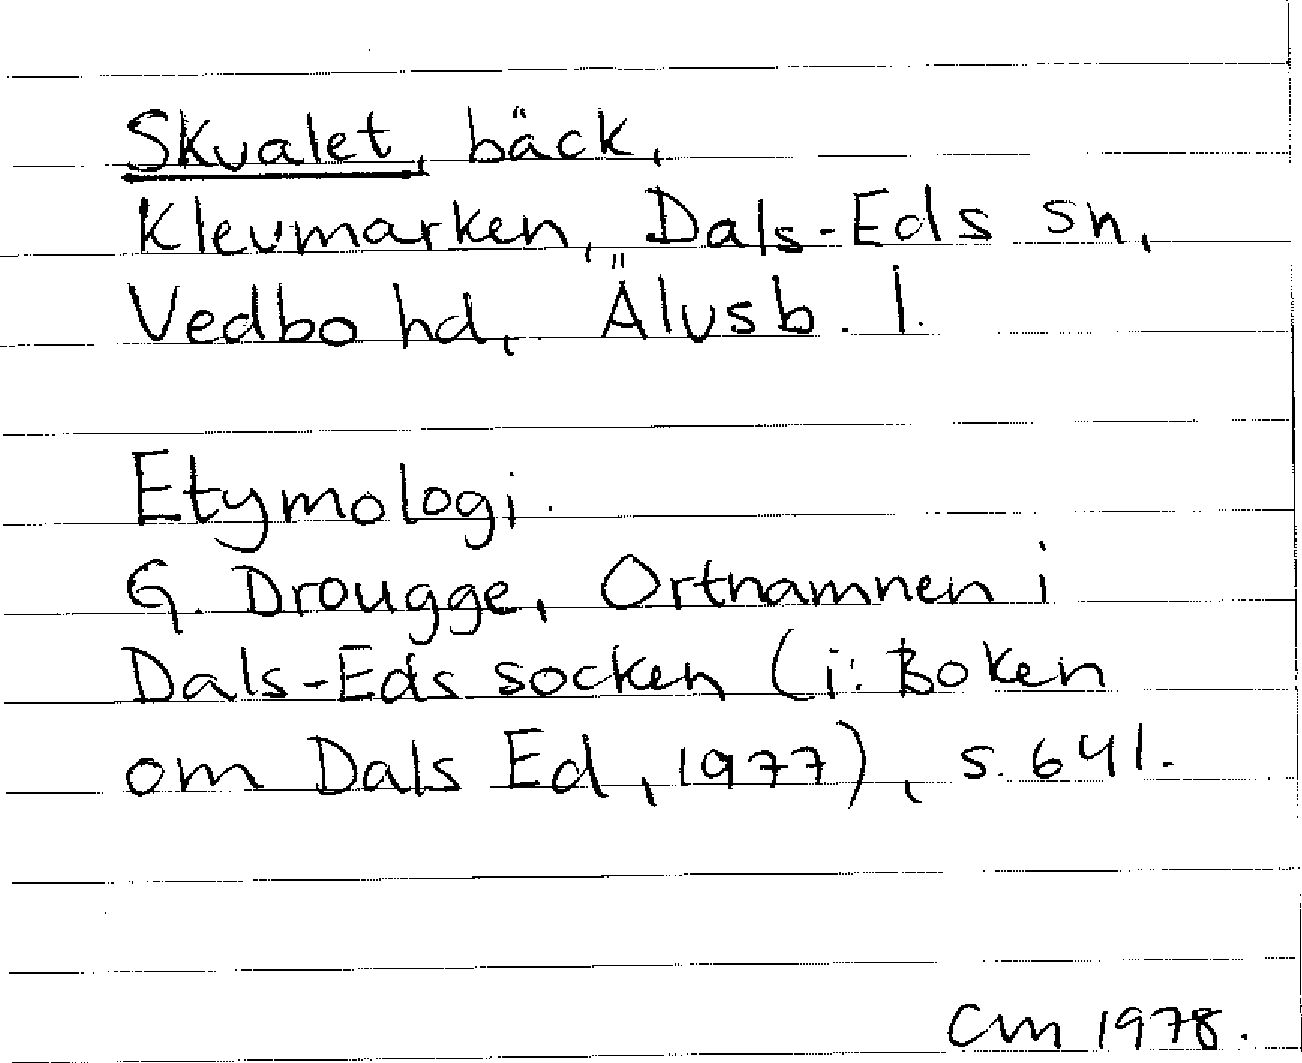 Skvalet, bäck,
Klevmarken, Dals-Eds sn,
Vedbo hd, Älvsb. l.
Etymologi.
G. Drougge, Ortnamnen i
Dals-Eds socken (i: Boken
om Dals Ed, 1977), s. 641.
CM 1978.